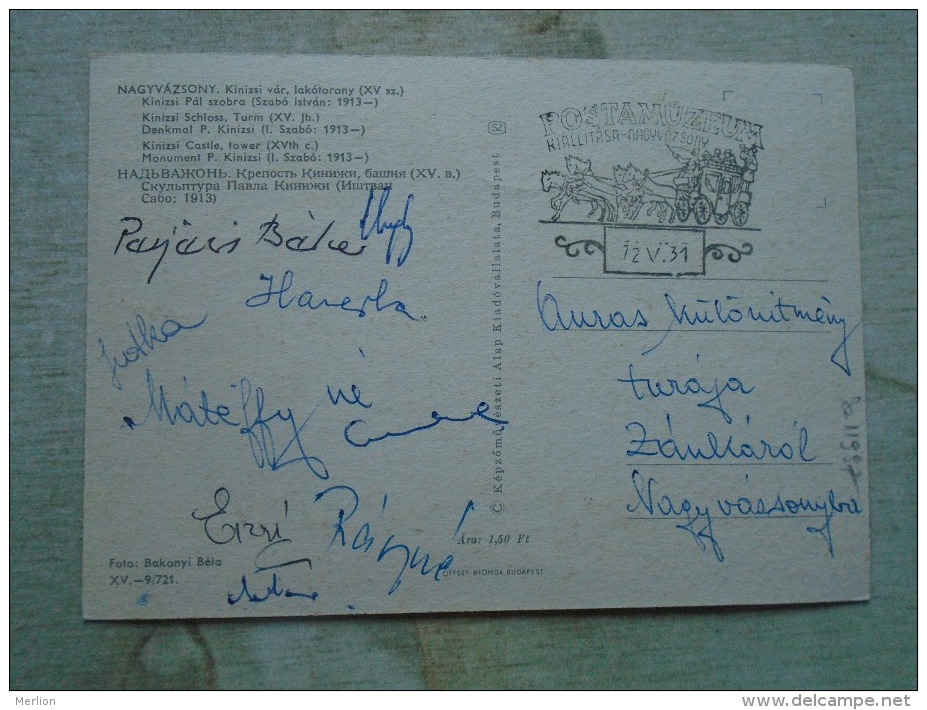 NAGYVÁZSONY. Kinizsi vár, lakótorony (XV sz.)
Kinizsi Pál szobra (Szabó István: 1913—)
Kinizsi Schloss, Turm (XV. Jh.)
Denkmal P. Kinizsi (I. Szabó: 1913—)
Kinizsi Castle, tower (XVth c.)
Monument P. Kinizsi (I. Szabó: 1913—)
НАДЬВАЖОНЬ. Крепость Кинижи, башня (XV. в.)
Скульптура Павла Кинижи (Иштван
Сабо: 1913)
Jutka
Máteffy né
Erzsi
Foto: Bakonyi Béla
XV.—9/721.
Ára: 1,50 Ft
OFFSET-NYOMDA BUDAPEST
© Képzőművészeti Alap Kiadóvállalata, Budapest
SZ
POSTAMÚZEUM
KIÁLLÍTÁSA-NAGYVÁZSONY
72 V.31
Auras különítmény
turája
Zánkáról
Nagyvássonyba
Merlion
www.delcampe.net